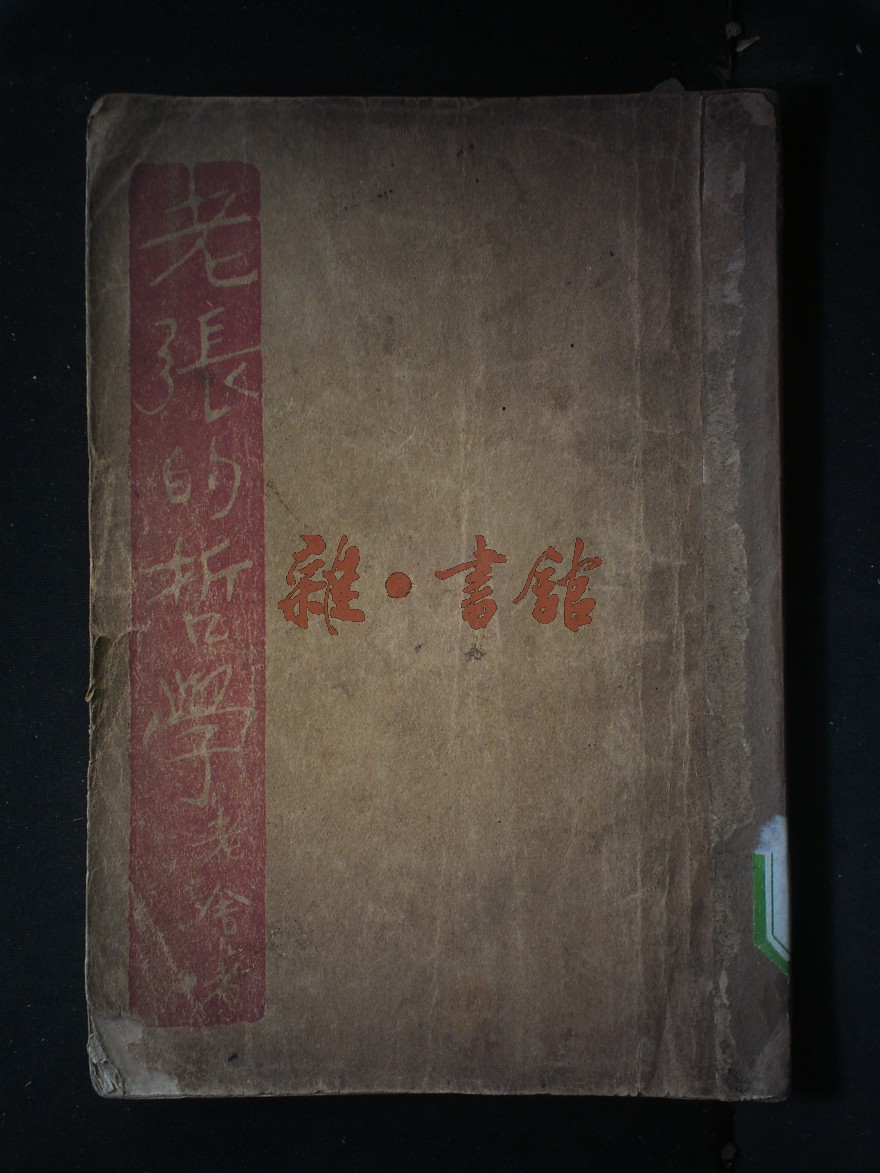 老張的哲學
老舍著
雜·書館